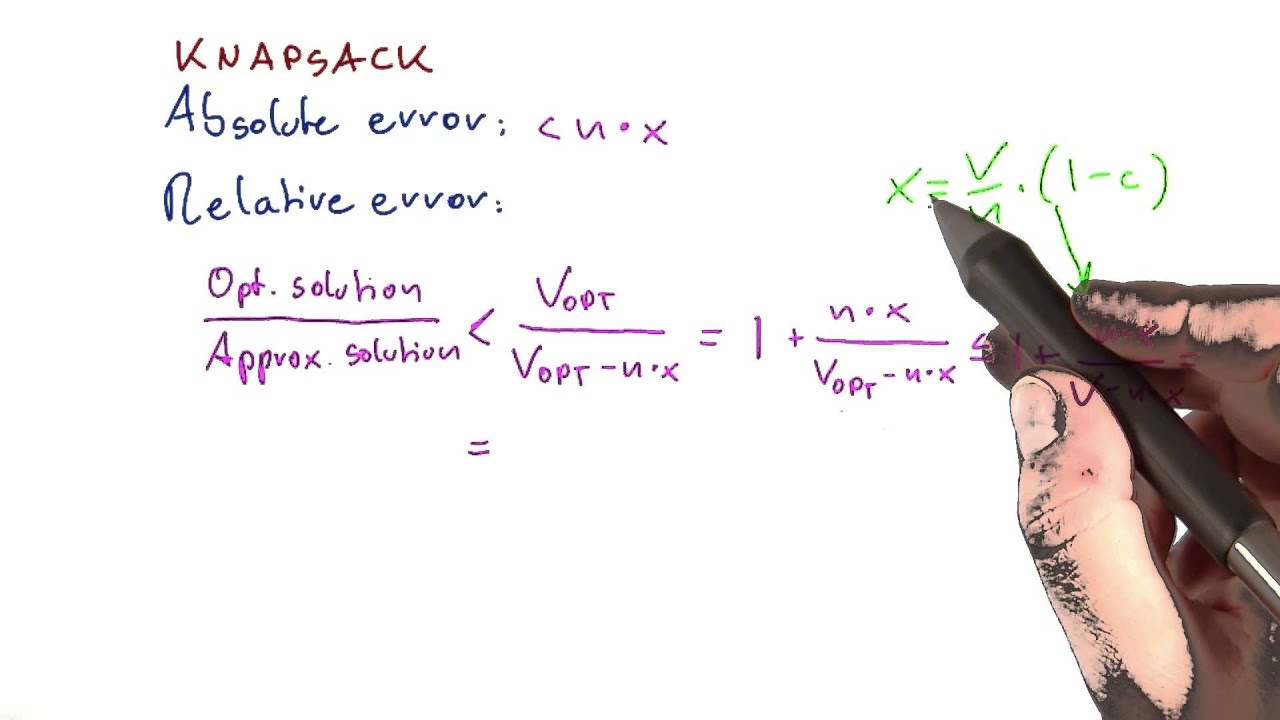 KNAPSACK
Absolute error: < n · x
Relative error:
x = V/n · (1 - c)
Opt. solution / Approx. solution < V_OPT / (V_OPT - n·x) = 1 + n·x / (V_OPT - n·x) ≤ 1 + n·x / (V - n·x) =
=